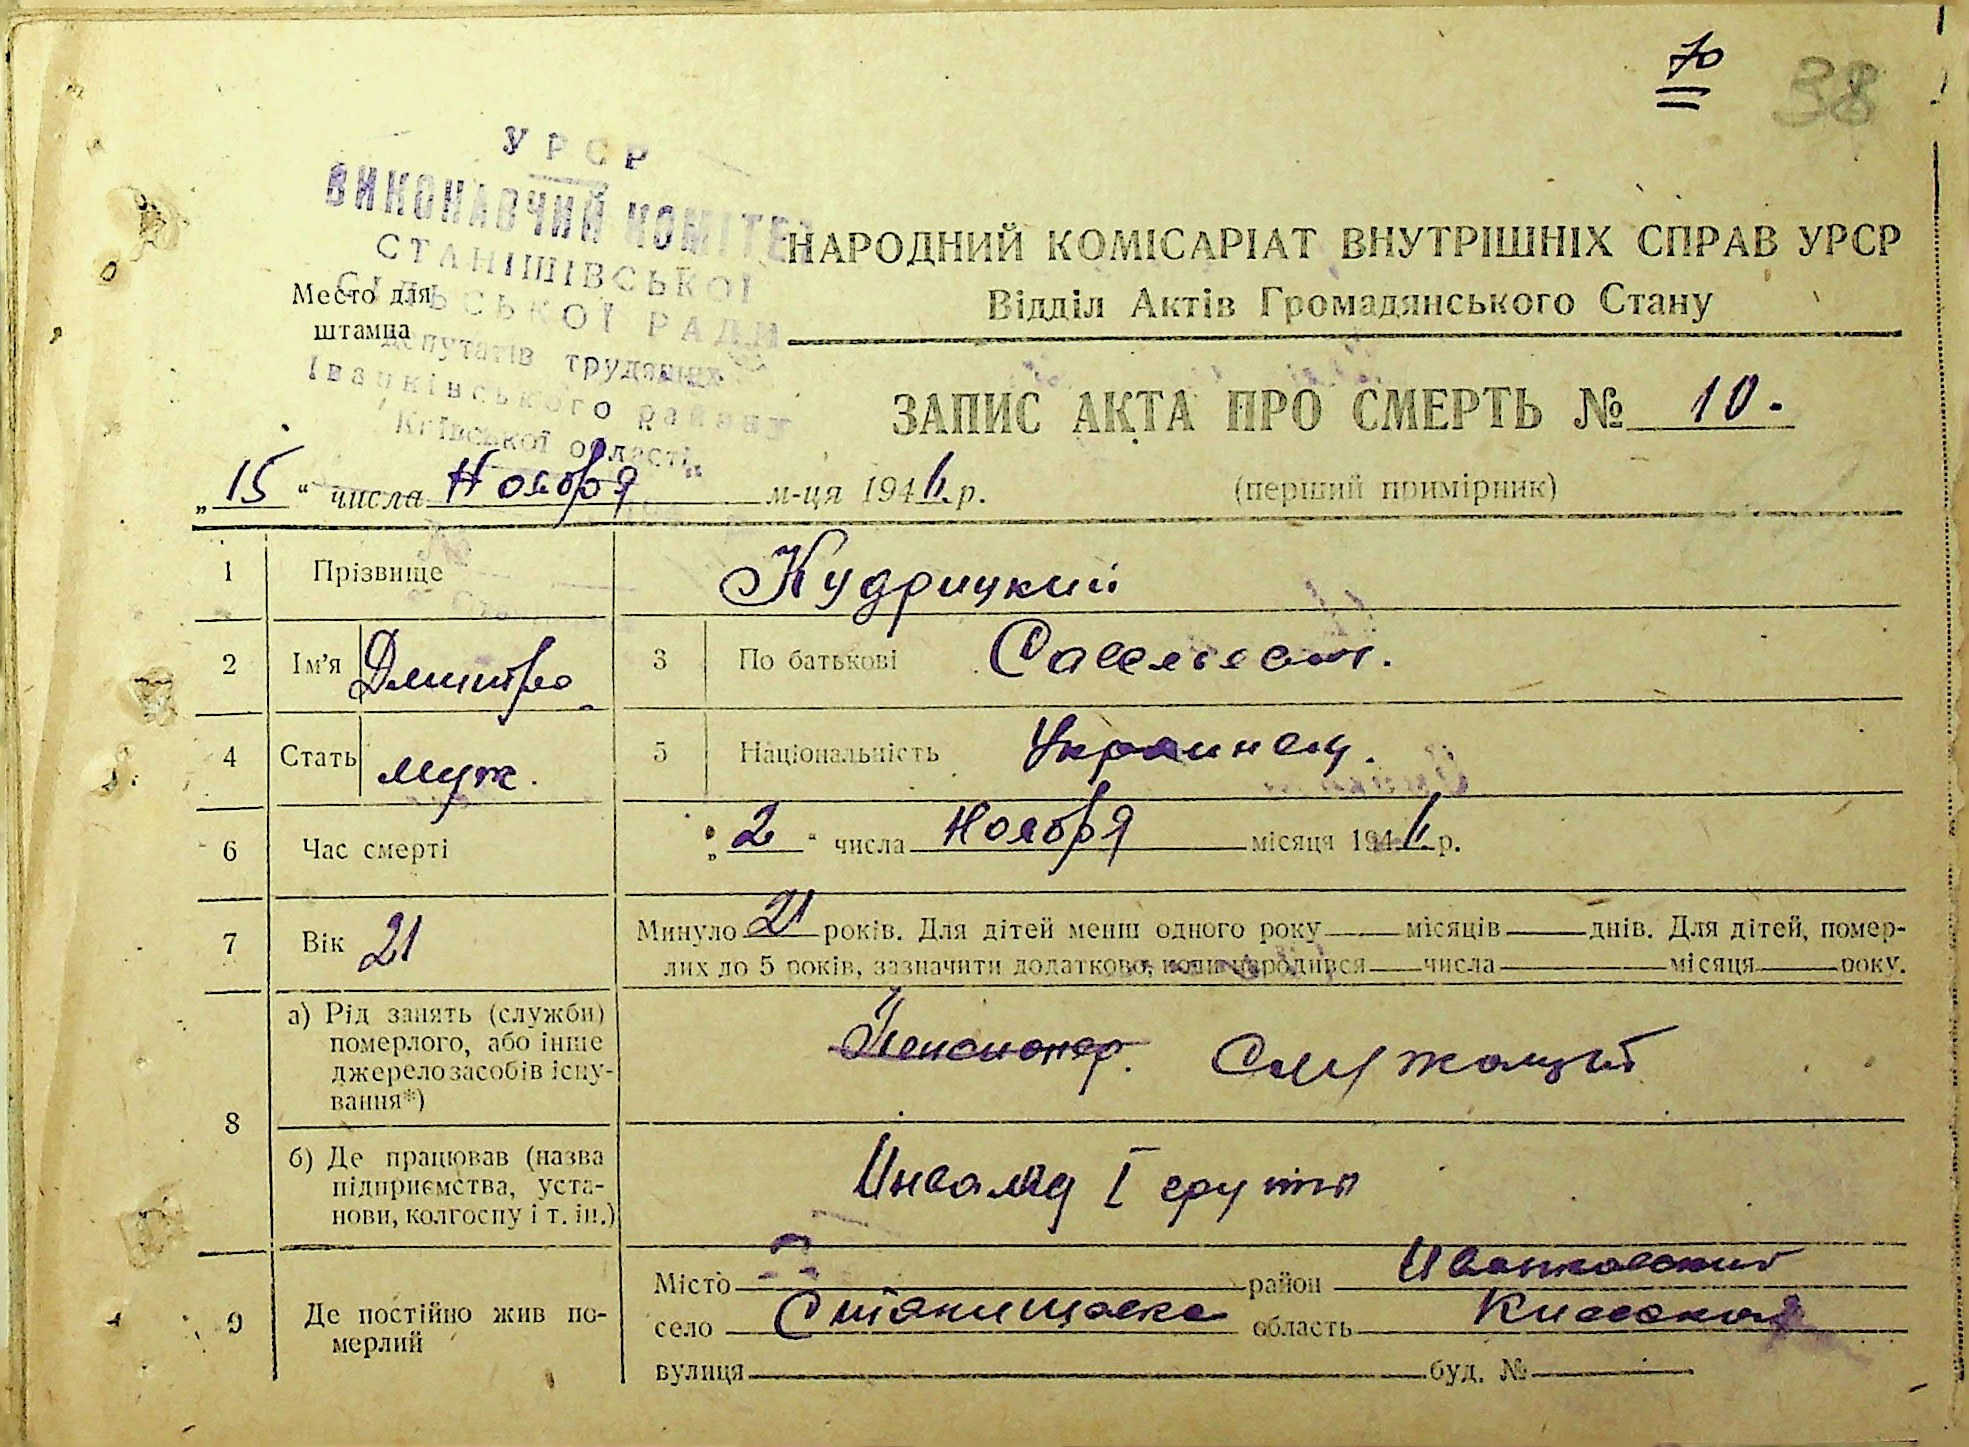 70
38
УРСР
ВИКОНАВЧИЙ КОМІТЕТ
СТАНІШІВСЬКОЇ
СІЛЬСЬКОЇ РАДИ
депутатів трудящих
Іванківського району
Київської області
Место для
штампа
НАРОДНИЙ КОМІСАРІАТ ВНУТРІШНІХ СПРАВ УРСР
Відділ Актів Громадянського Стану
ЗАПИС АКТА ПРО СМЕРТЬ № 10.
„15“ числа Ноября м-ця 194 р.
(перший примірник)
1 Прізвище Кудрицкий
2 Ім’я Дмитро 3 По батькові Савельевич.
4 Стать муж. 5 Національність Украинец.
6 Час смерті „2“ числа Ноября місяця 194 р.
7 Вік 21 Минуло 21 років. Для дітей менш одного року місяців днів. Для дітей, помер-
лих до 5 років, зазначити додатково, коли народився числа місяця року.
8 а) Рід занять (служби)
померлого, або інше
джерело засобів існу-
вання*)
Пенсионер. Служащий
б) Де працював (назва
підприємства, уста-
нови, колгоспу і т. ін.)
Инвалид I групы
9 Де постійно жив по-
мерлий
Місто район Иванковский
село Станищевка область Киевская
вулиця буд. №